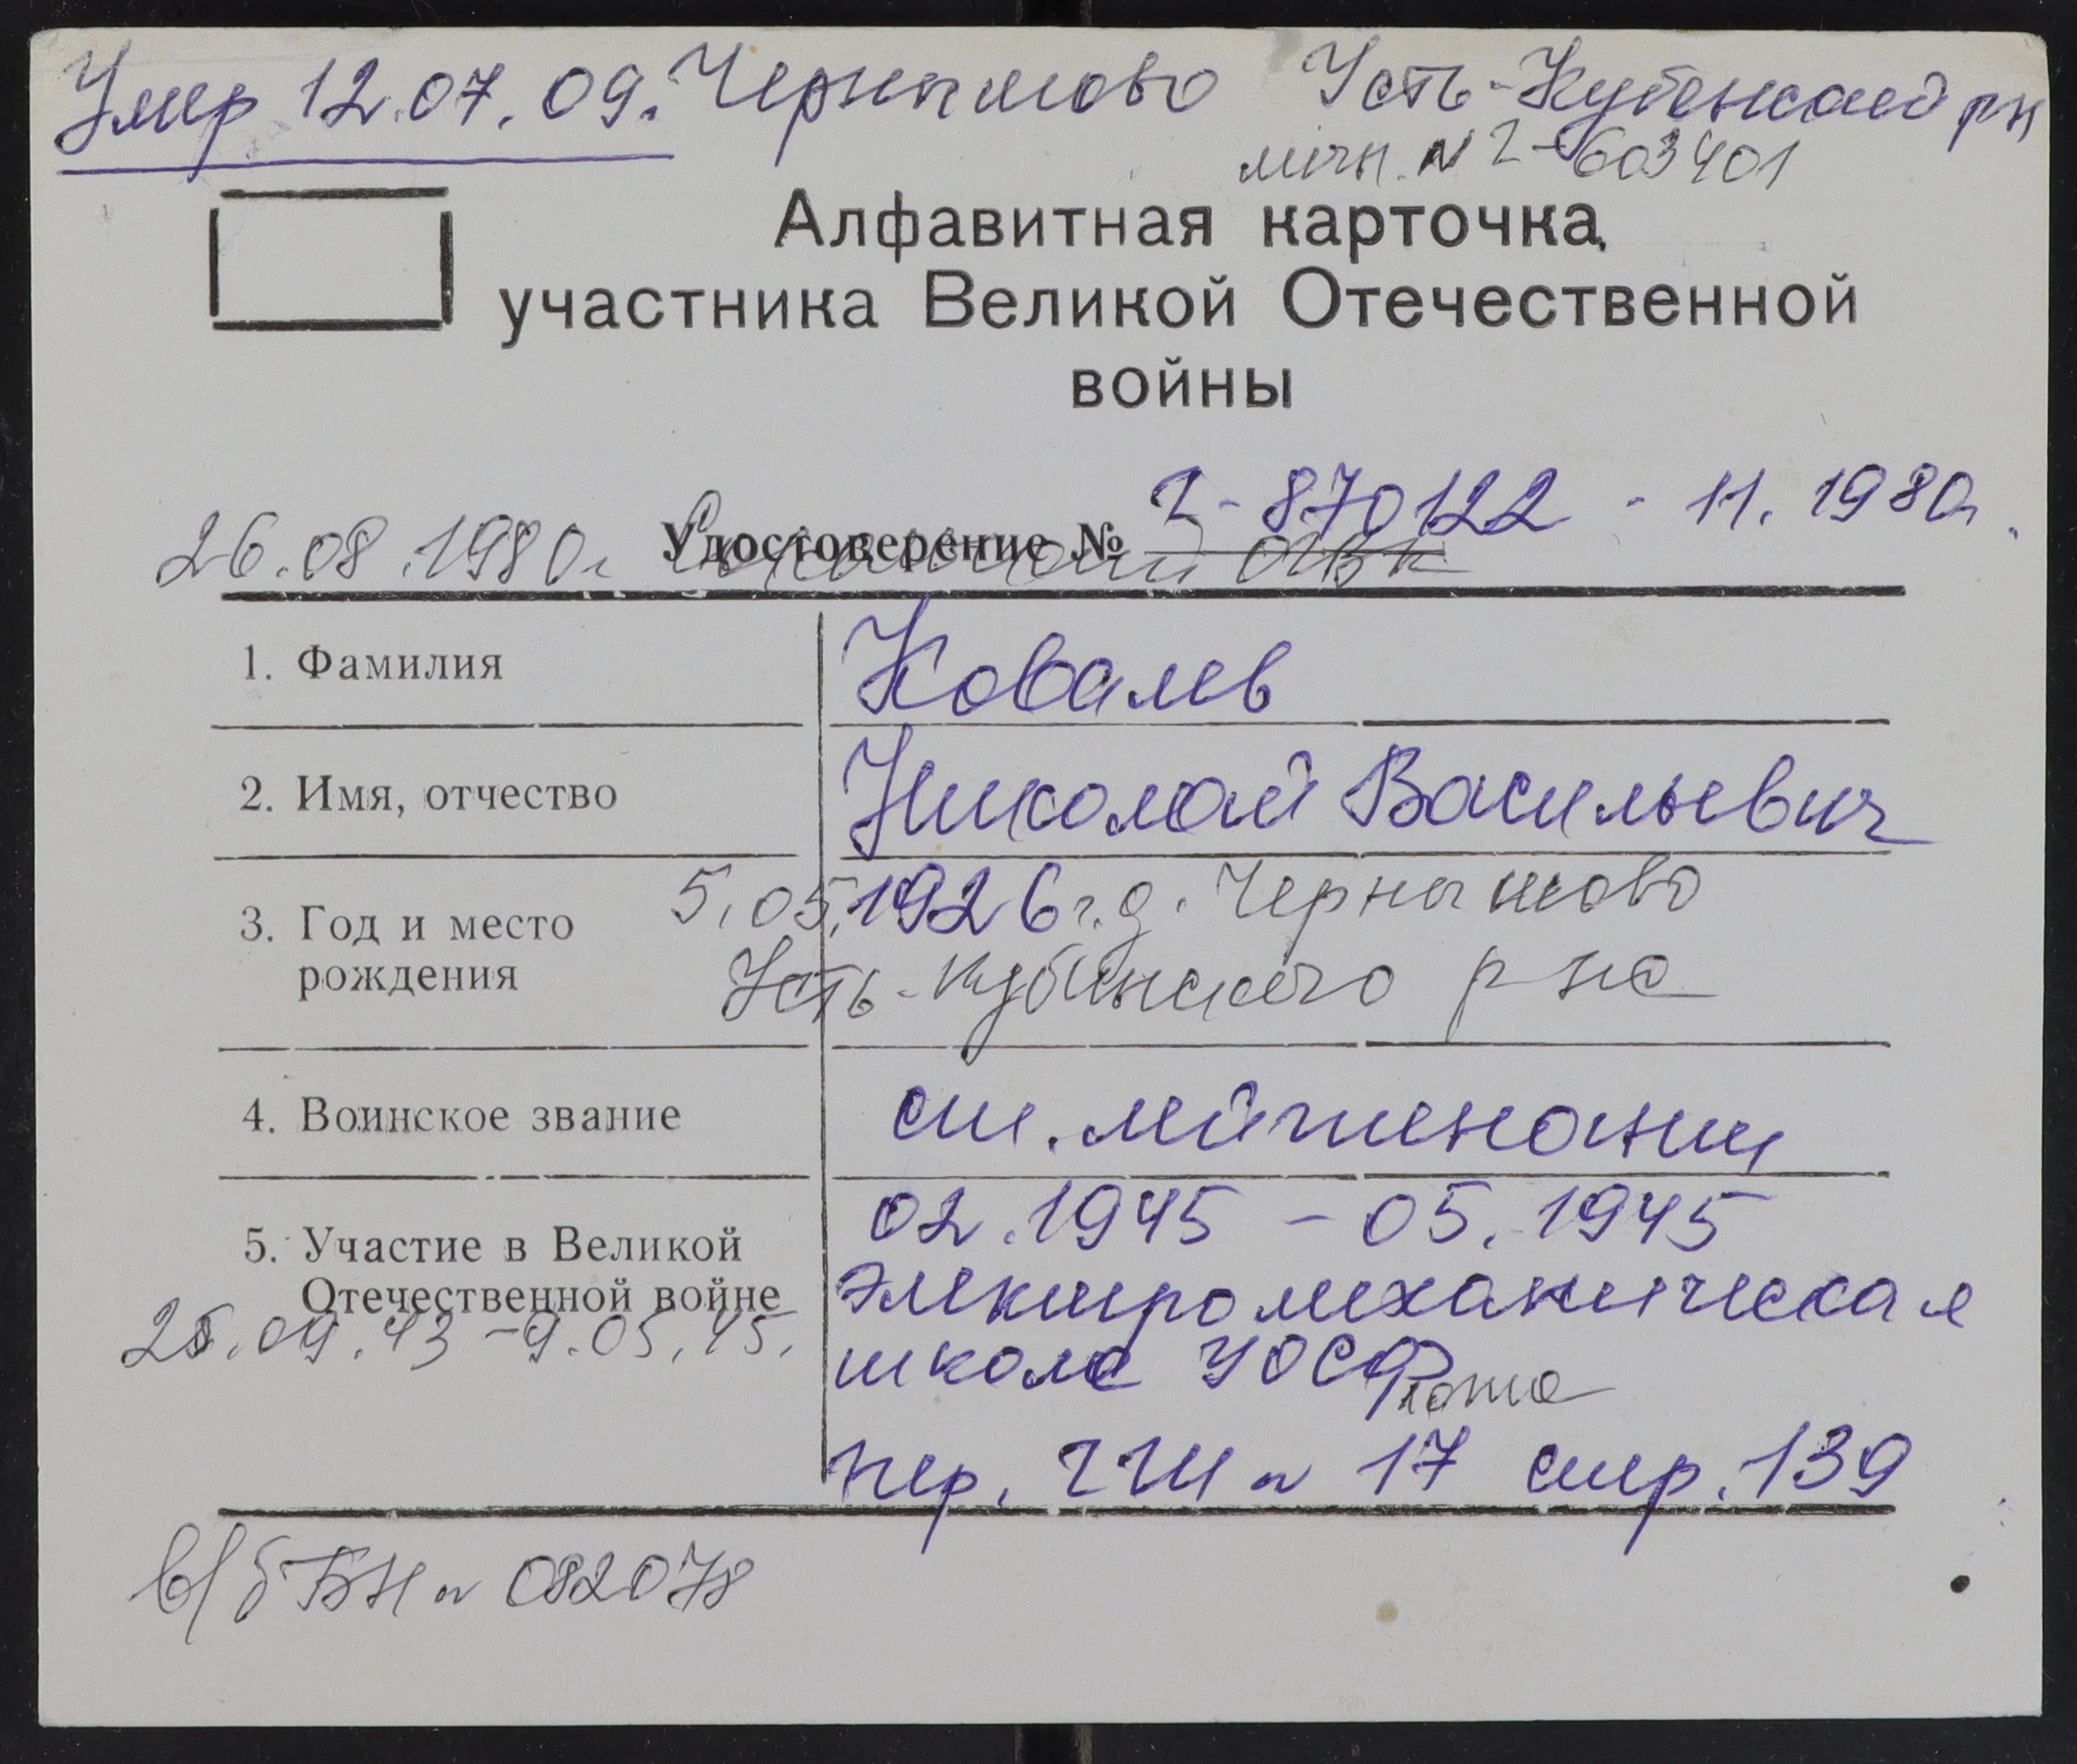 Умер 12.07.09. Чернышово Усть-Кубенский рн
личн. № Г-603401
Алфавитная карточка
участника Великой Отечественной
войны
Г-870122 - 11.1980г.
26.08.1980г. Удостоверение № ОГВК
1. Фамилия Ковалев
2. Имя, отчество Николай Васильевич
3. Год и место рождения 5.05.1926 г. д. Чернышово
Усть-Кубинского р-на
4. Воинское звание ст. лейтенант
5. Участие в Великой Отечественной войне 02.1945 - 05.1945
25.09.43 - 9.05.45. Электромеханическая
школа УОСФлота
пер. ГШ № 17 стр. 139
в/б БН № 082078